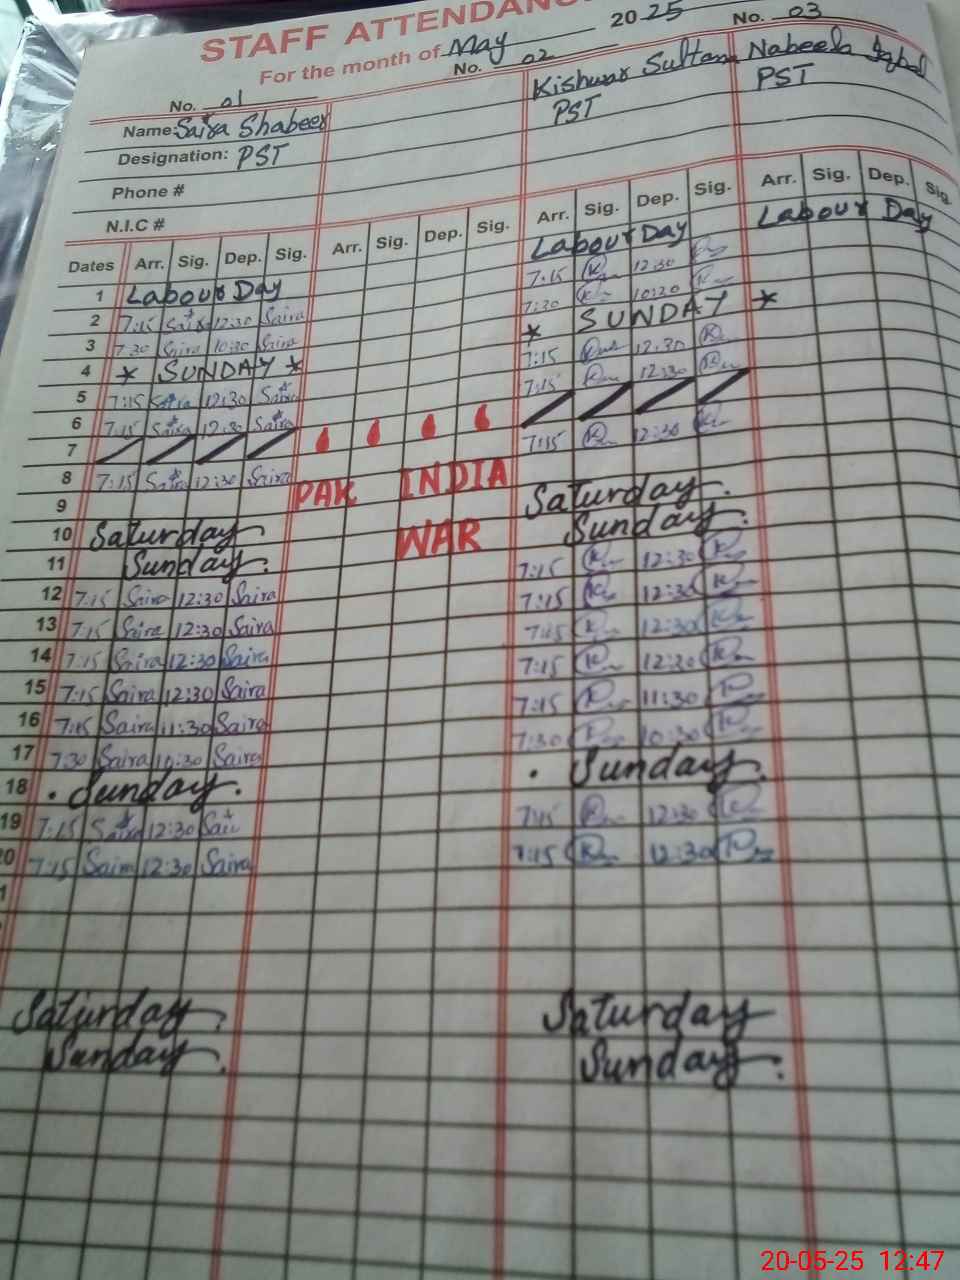 STAFF ATTENDANC
For the month of May 2025
No. 01 No. 02 No. 03
Name: Saira Shabeer Kishwar Sultan Nabeela Iqbal
Designation: PST PST PST
Phone #
N.I.C #
Dates Arr. Sig. Dep. Sig. Arr. Sig. Dep. Sig. Arr. Sig. Dep. Sig. Arr. Sig. Dep. Sig.
1 Labour Day Labour Day Labour Day
2 7:15 Saira 12:30 Saira 7:15 12:30
3 7:30 Saira 10:30 Saira 7:30 10:30
4 * SUNDAY * * SUNDAY *
5 7:15 Saira 12:30 Saira 7:15 12:30
6 7:15 Saira 12:30 Saira 7:15 12:30
7
8 7:15 Saira 12:30 Saira 7:15 12:30
PAK INDIA
9
10 Saturday Saturday.
WAR
11 Sunday. Sunday.
12 7:15 Saira 12:30 Saira 7:15 12:30
13 7:15 Saira 12:30 Saira 7:15 12:30
14 7:15 Saira 12:30 Saira 7:15 12:30
15 7:15 Saira 12:30 Saira 7:15 12:30
16 7:15 Saira 11:30 Saira 7:15 11:30
17 7:30 Saira 10:30 Saira 7:30 10:30
18 . Sunday. . Sunday.
19 7:15 Saira 12:30 Sai 7:15 12:30
20 7:15 Saira 12:30 Saira 7:15 12:30
1
Saturday. Saturday
Sunday. Sunday.
20-05-25 12:47